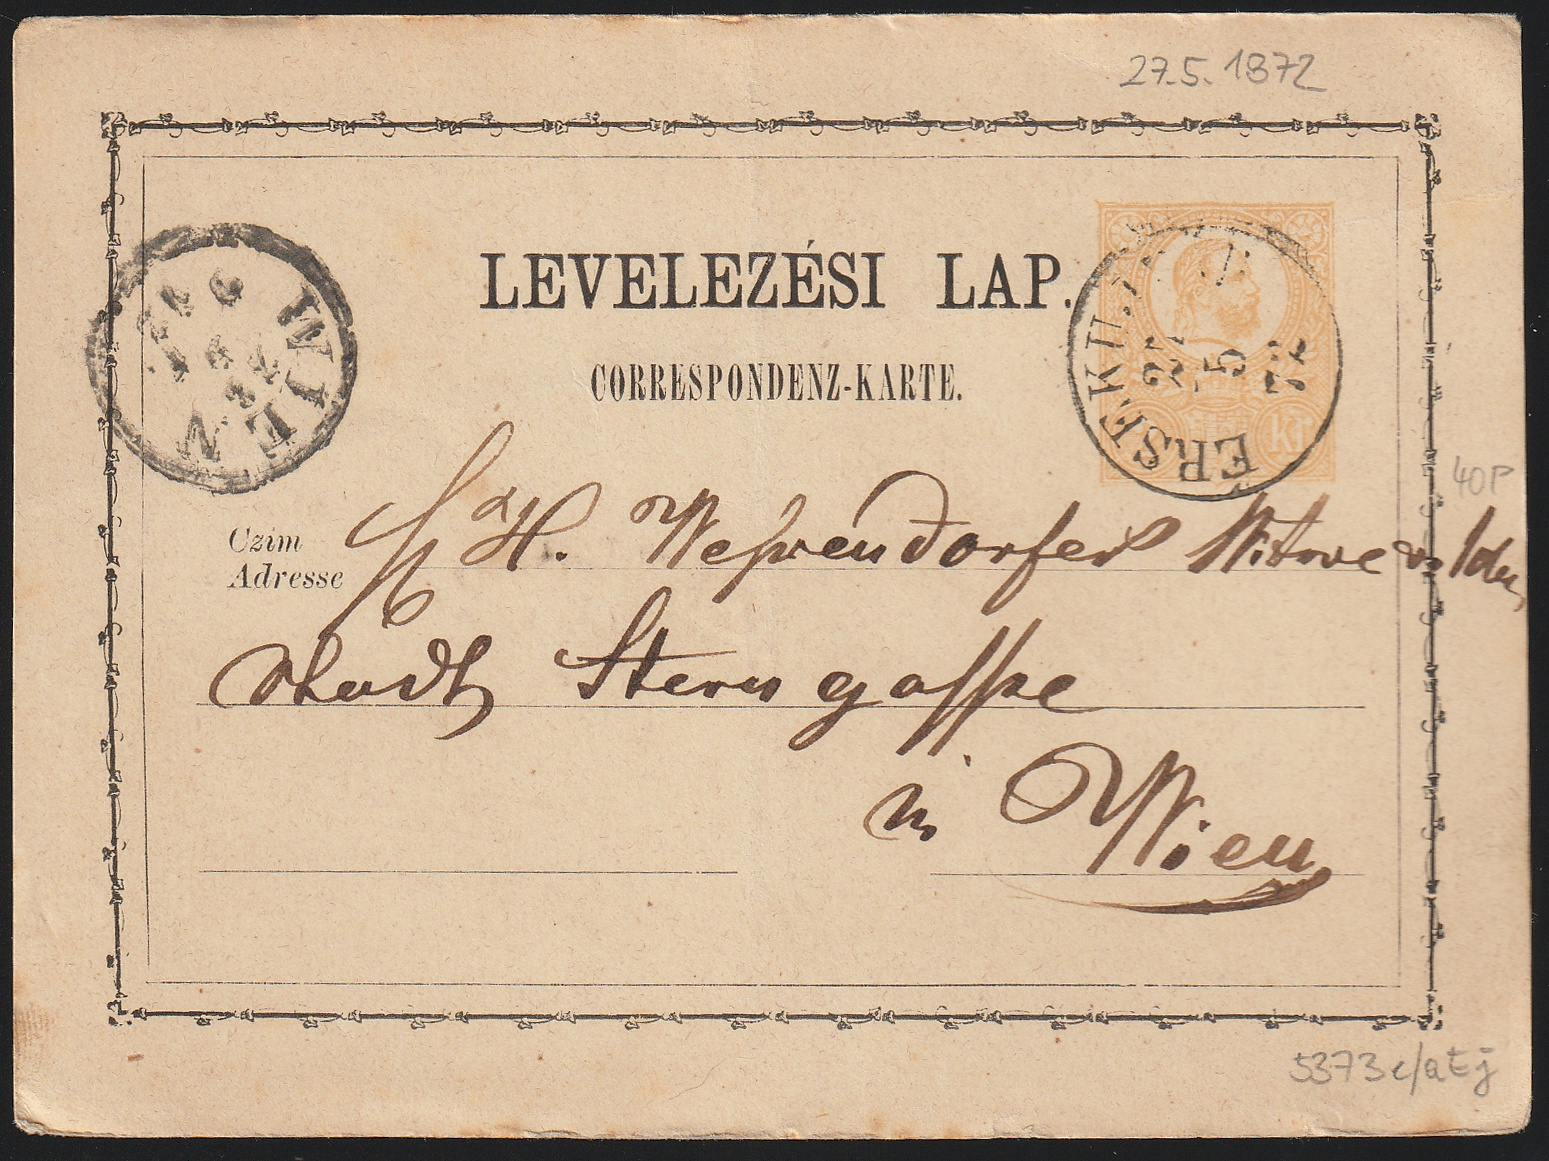 27.5.1872
LEVELEZÉSI LAP.
CORRESPONDENZ-KARTE.
WIEN
ÉRSEKUJ
27
5
72
kr
40P
Czim
Adresse
H. Witwe
Stadt Sterngasse
in Wien
5373